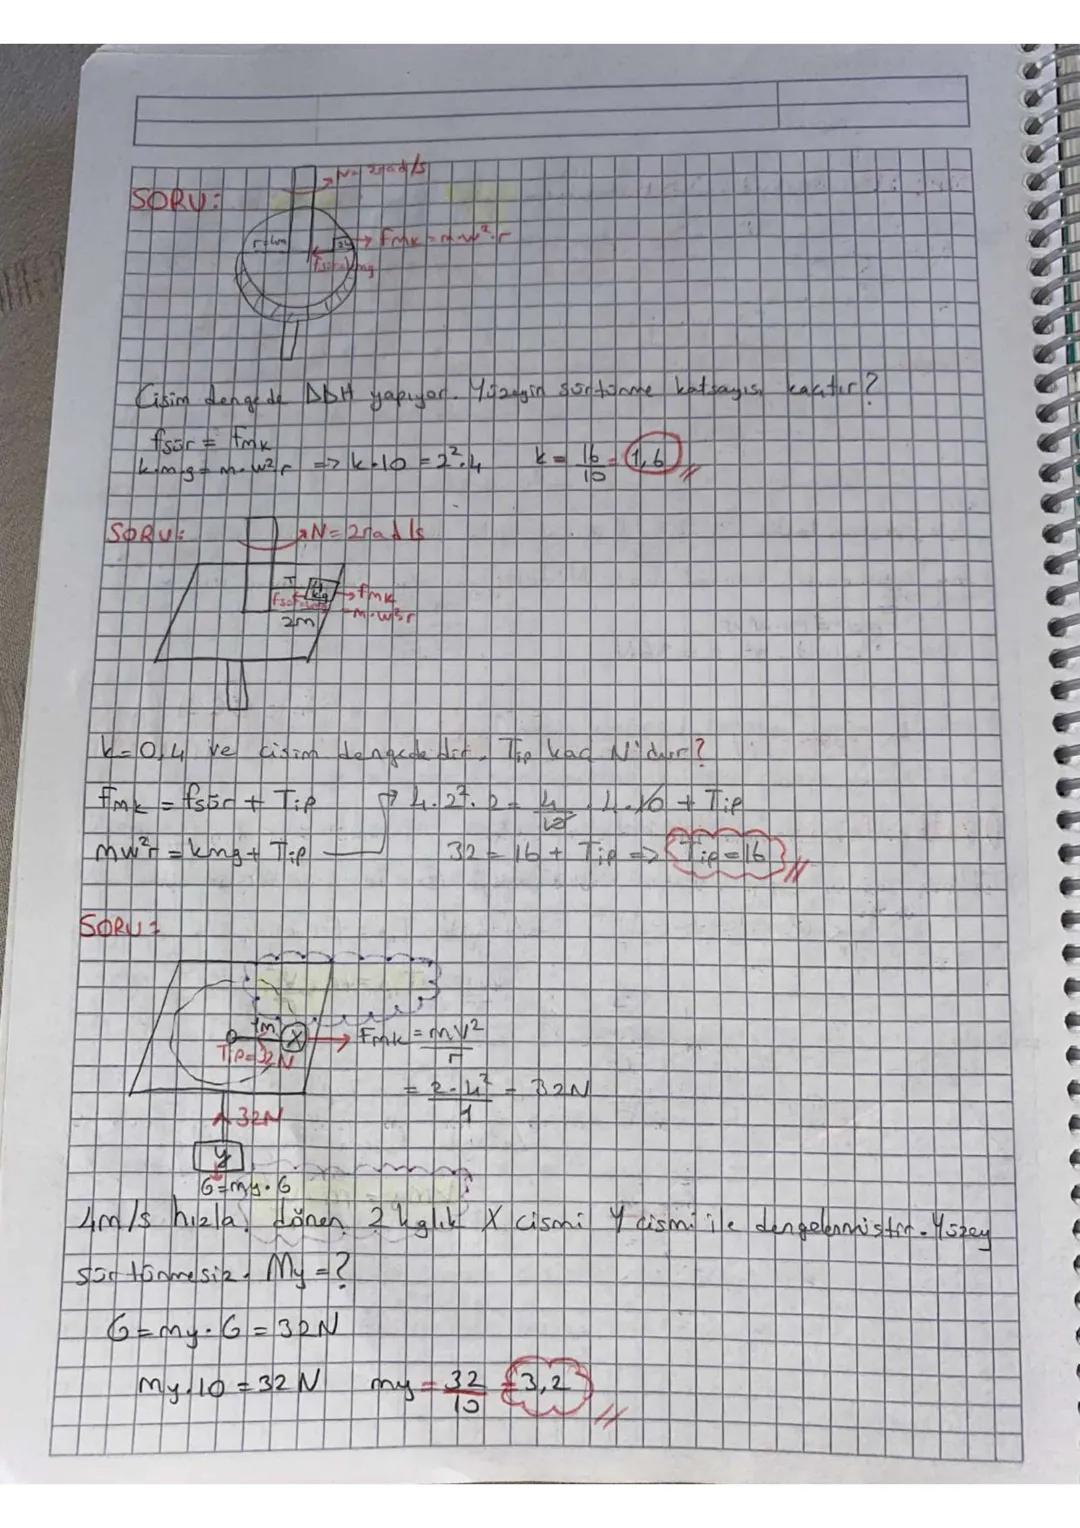 SORU:
N=2rad/s
r=4m
2k
Fmk = m·w².r
fsür=kmg
Cisim dengede DDH yapıyor. Yüzeyin sürtünme katsayısı kaçtır?
fsür = fmk
k.m.g = m.w².r => k.10 = 2².4 k = 16/10 = 1,6
SORU:
N=2rad/s
T
4kg
fmk
=m.w²r
2m
k=0,4 ve cisim dengededir. Tip kaç N'dur?
fmk = fsür + Tip → 4.2².2 = 4/10 . 4.10 + Tip
mw²r = kmg + Tip
32 = 16 + Tip => Tip=16
SORU:
1m X
Fmk = mv²/r
Tip=32N
= 2.4²/1 = 32N
32N
y
G=my.G
4m/s hızla dönen 2 kglık X cismi Y cismi ile dengelenmiştir. Yüzey
sürtünmesiz. My=?
G=my.G=32N
my.10=32N my = 32/10 = 3,2